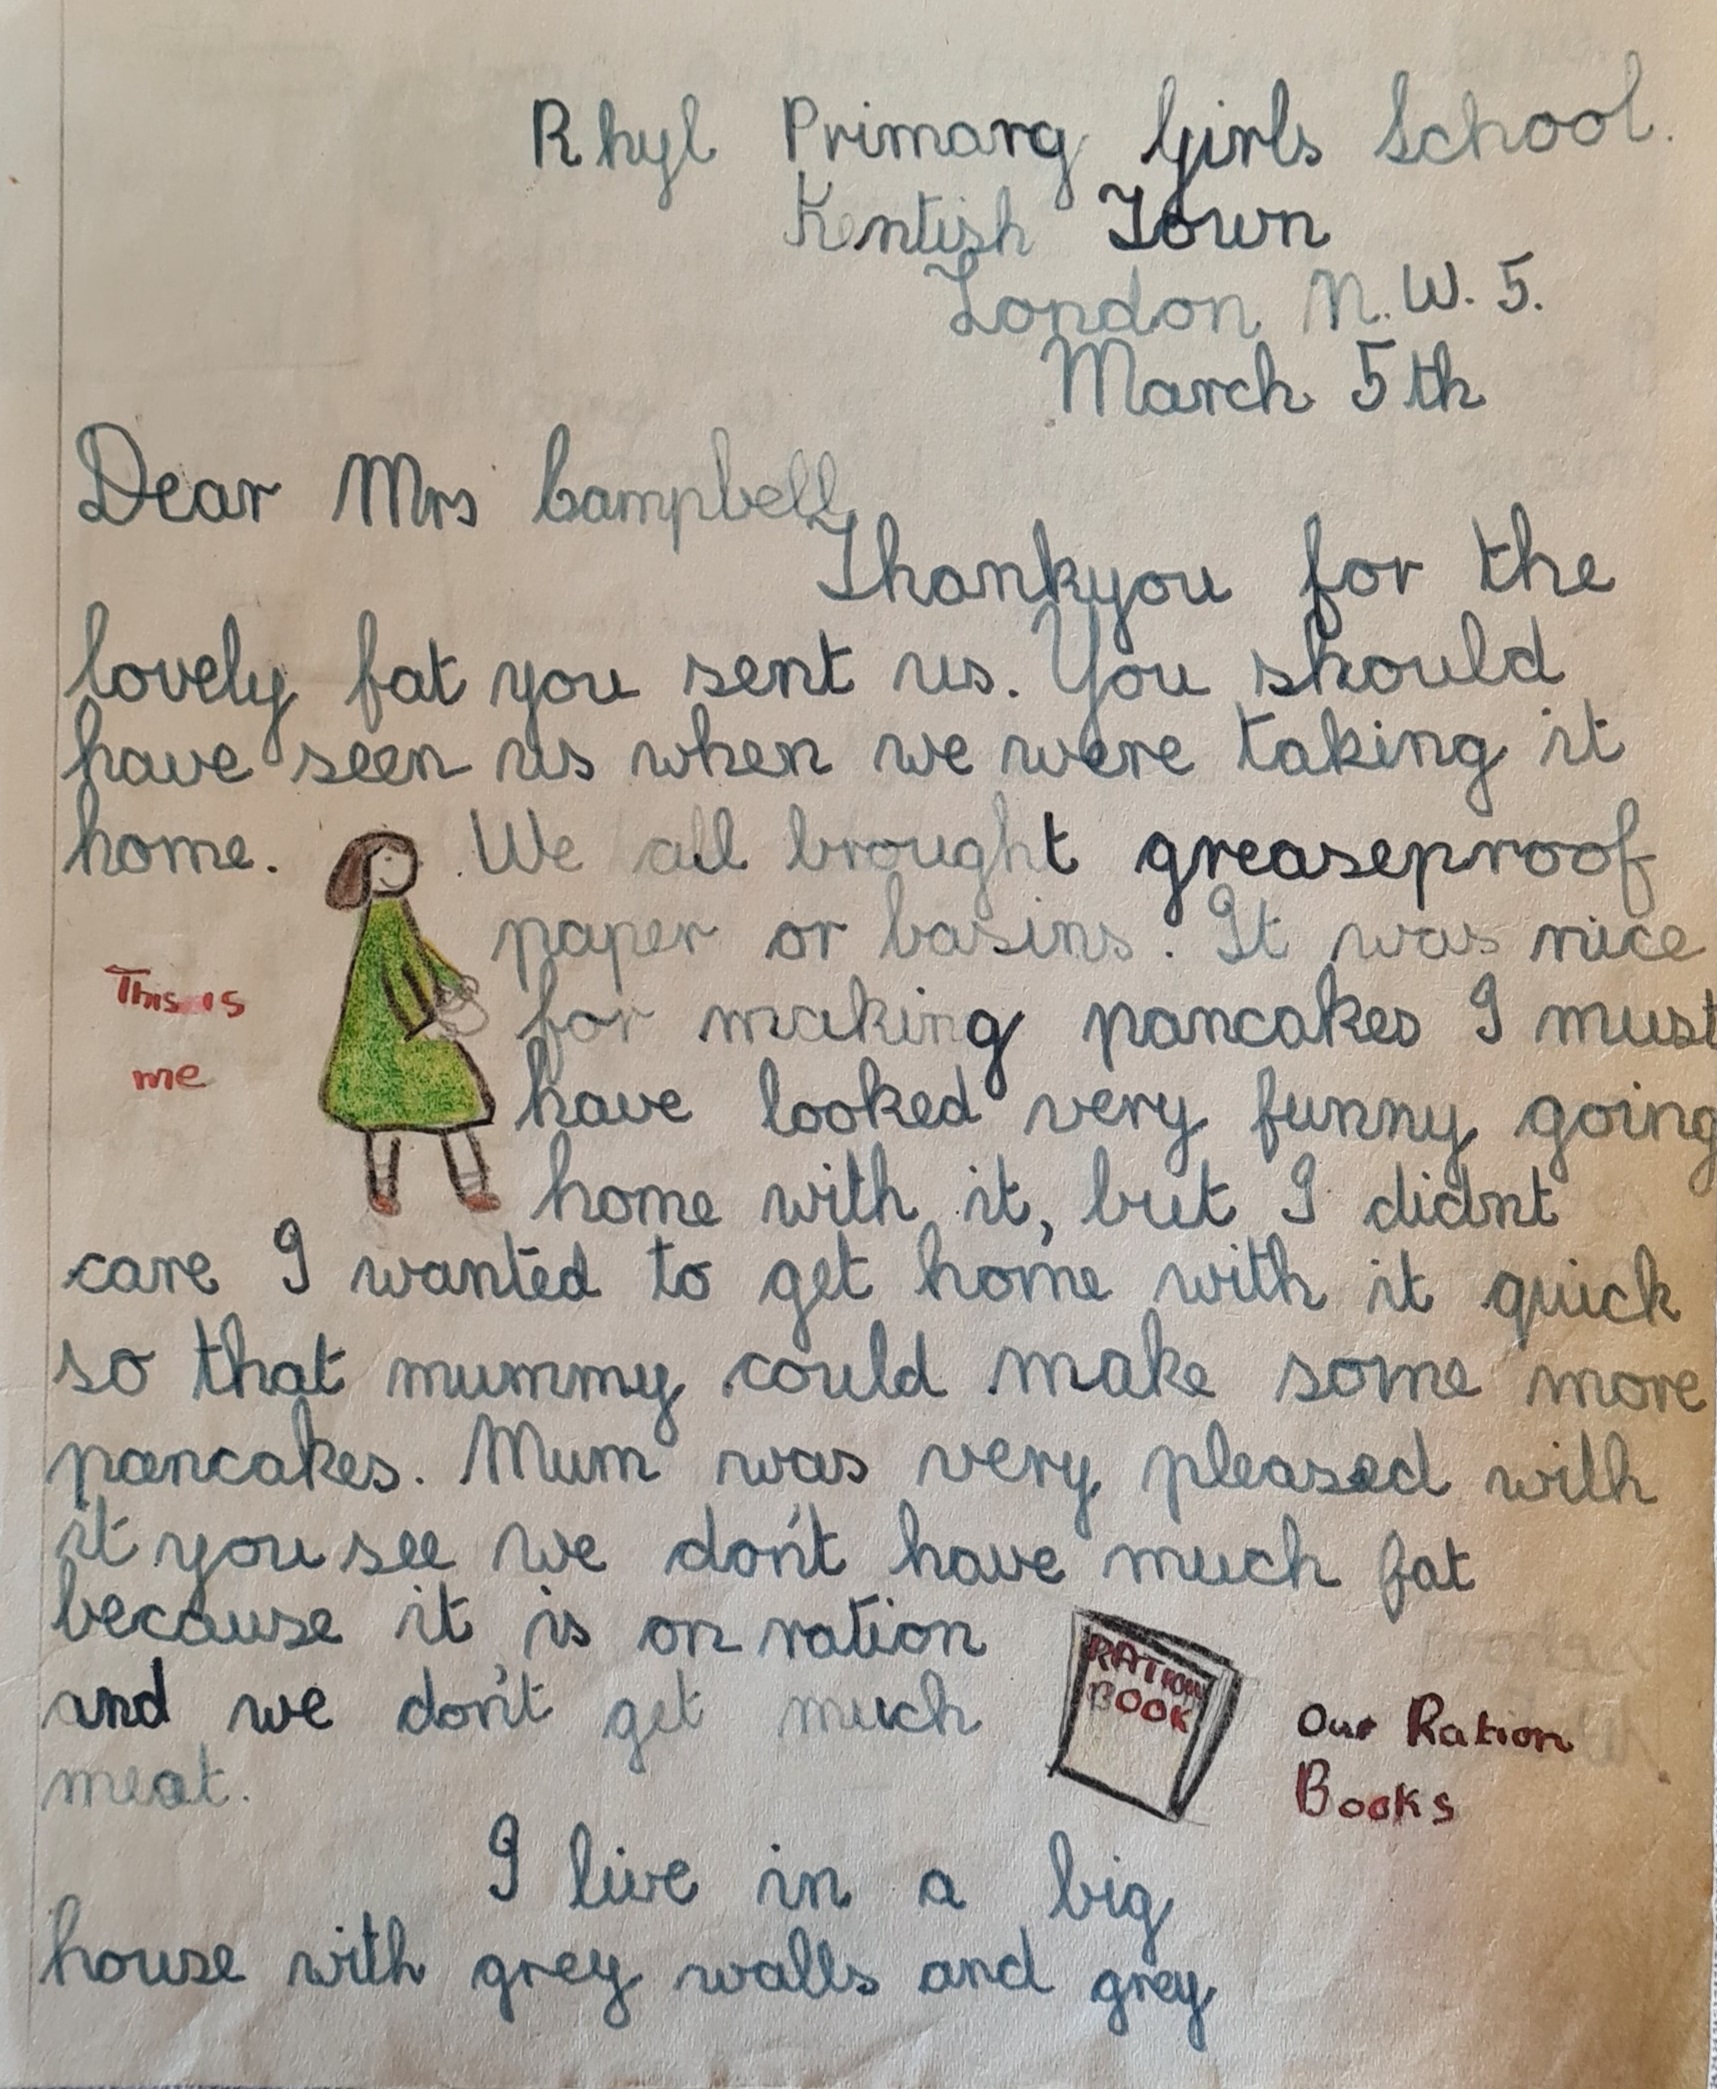 Rhyl Primary Girls School.
Kentish Town
London N.W.5.
March 5th
Dear Mrs Campbell
Thankyou for the
lovely fat you sent us. You should
have seen us when we were taking it
home. We all brought greaseproof
paper or basins. It was nice
This is
me
for making pancakes I must
have looked very funny going
home with it, but I didnt
care I wanted to get home with it quick
so that mummy could make some more
pancakes. Mum was very pleased with
it you see we don't have much fat
because it is on ration
and we don't get much
meat.
RATION
BOOK
Our Ration
Books
I live in a big
house with grey walls and grey